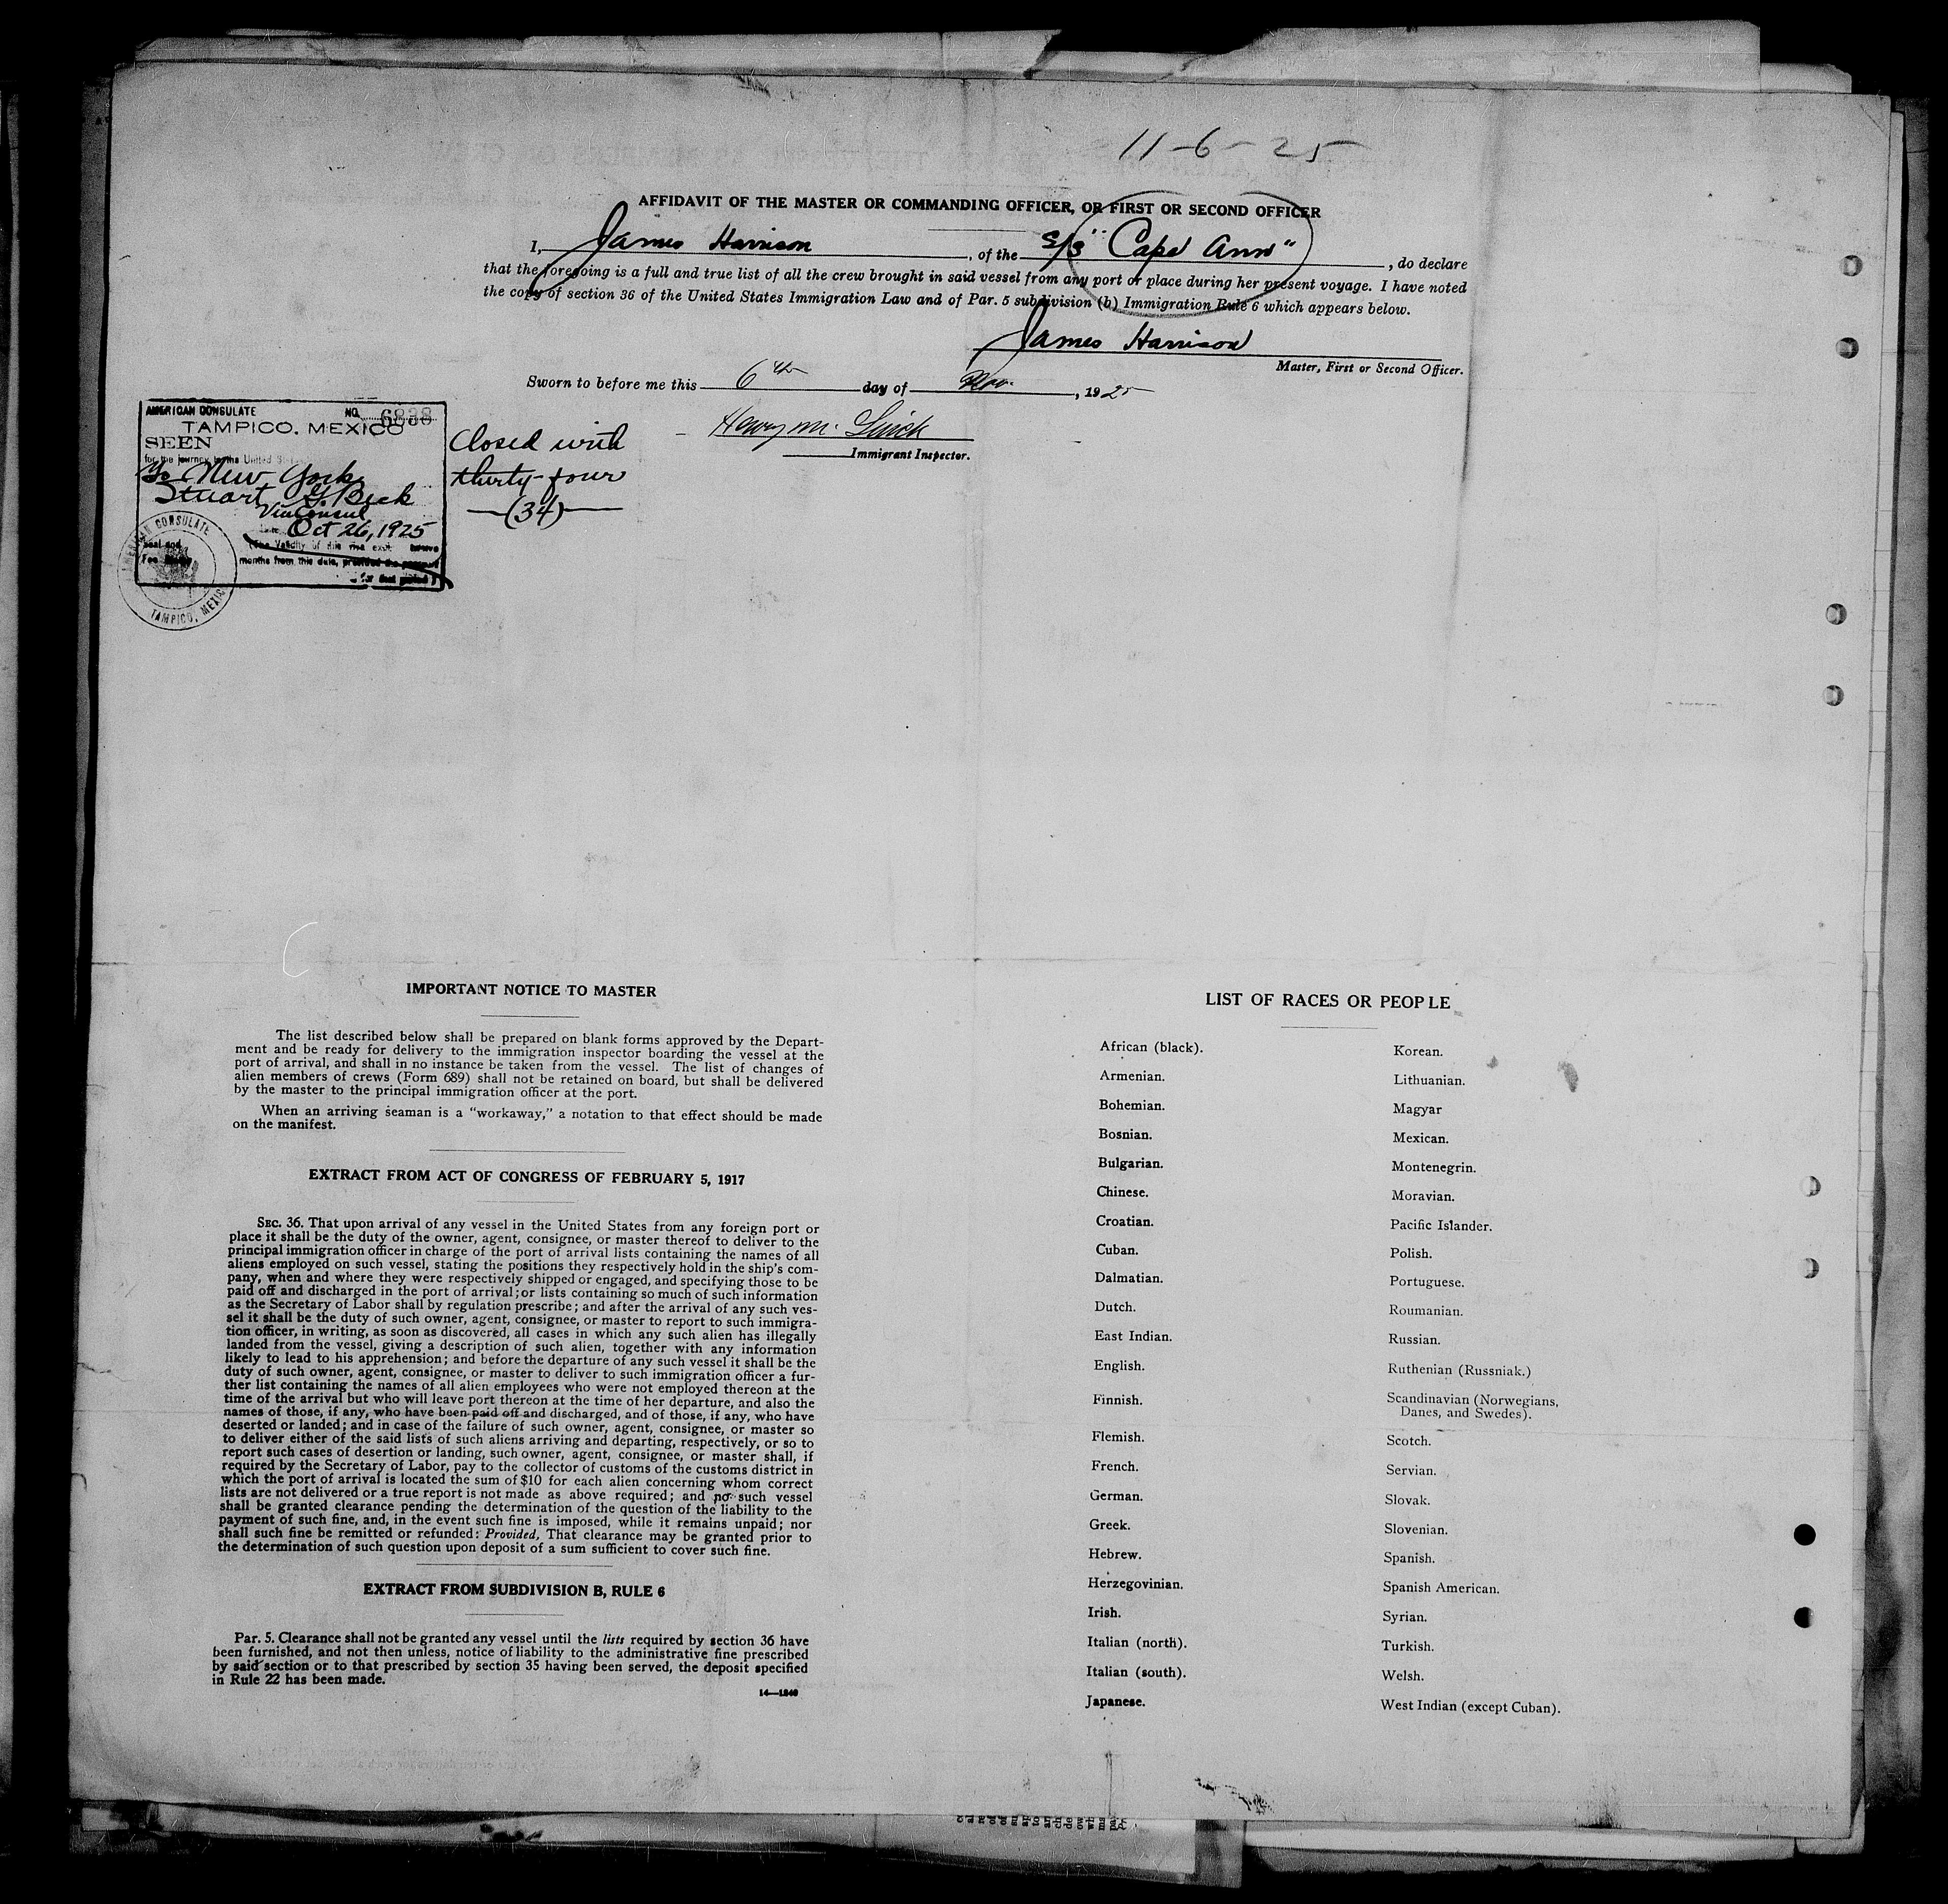 11-6-25
AFFIDAVIT OF THE MASTER OR COMMANDING OFFICER, OR FIRST OR SECOND OFFICER
I, James Harrison, of the S/S "Cape Ann", do declare
that the foregoing is a full and true list of all the crew brought in said vessel from any port or place during her present voyage. I have noted
the copy of section 36 of the United States Immigration Law and of Par. 5 subdivision (b) Immigration Rule 6 which appears below.
James Harrison
Master, First or Second Officer.
Sworn to before me this 6th day of Nov., 1925
Henry M.
Immigrant Inspector.
AMERICAN CONSULATE NO. 6838
TAMPICO, MEXICO
SEEN
for the journey to the United
To New York
Stuart G. Beck
Vice Consul
Oct 26, 1925
Seal and (The Validity of this visa
Fee months from this date, provided the
AMERICAN CONSULATE
TAMPICO, MEXICO
Closed with
thirty-four
(34)
IMPORTANT NOTICE TO MASTER
The list described below shall be prepared on blank forms approved by the Depart-
ment and be ready for delivery to the immigration inspector boarding the vessel at the
port of arrival, and shall in no instance be taken from the vessel. The list of changes of
alien members of crews (Form 689) shall not be retained on board, but shall be delivered
by the master to the principal immigration officer at the port.
When an arriving seaman is a "workaway," a notation to that effect should be made
on the manifest.
EXTRACT FROM ACT OF CONGRESS OF FEBRUARY 5, 1917
SEC. 36. That upon arrival of any vessel in the United States from any foreign port or
place it shall be the duty of the owner, agent, consignee, or master thereof to deliver to the
principal immigration officer in charge of the port of arrival lists containing the names of all
aliens employed on such vessel, stating the positions they respectively hold in the ship's com-
pany, when and where they were respectively shipped or engaged, and specifying those to be
paid off and discharged in the port of arrival; or lists containing so much of such information
as the Secretary of Labor shall by regulation prescribe; and after the arrival of any such ves-
sel it shall be the duty of such owner, agent, consignee, or master to report to such immigra-
tion officer, in writing, as soon as discovered, all cases in which any such alien has illegally
landed from the vessel, giving a description of such alien, together with any information
likely to lead to his apprehension; and before the departure of any such vessel it shall be the
duty of such owner, agent, consignee, or master to deliver to such immigration officer a fur-
ther list containing the names of all alien employees who were not employed thereon at the
time of the arrival but who will leave port thereon at the time of her departure, and also the
names of those, if any, who have been paid off and discharged, and of those, if any, who have
deserted or landed; and in case of the failure of such owner, agent, consignee, or master so
to deliver either of the said lists of such aliens arriving and departing, respectively, or so to
report such cases of desertion or landing, such owner, agent, consignee, or master shall, if
required by the Secretary of Labor, pay to the collector of customs of the customs district in
which the port of arrival is located the sum of $10 for each alien concerning whom correct
lists are not delivered or a true report is not made as above required; and no such vessel
shall be granted clearance pending the determination of the question of the liability to the
payment of such fine, and, in the event such fine is imposed, while it remains unpaid; nor
shall such fine be remitted or refunded: Provided, That clearance may be granted prior to
the determination of such question upon deposit of a sum sufficient to cover such fine.
EXTRACT FROM SUBDIVISION B, RULE 6
Par. 5. Clearance shall not be granted any vessel until the lists required by section 36 have
been furnished, and not then unless, notice of liability to the administrative fine prescribed
by said section or to that prescribed by section 35 having been served, the deposit specified
in Rule 22 has been made.
14—1240
LIST OF RACES OR PEOPLE
African (black).
Armenian.
Bohemian.
Bosnian.
Bulgarian.
Chinese.
Croatian.
Cuban.
Dalmatian.
Dutch.
East Indian.
English.
Finnish.
Flemish.
French.
German.
Greek.
Hebrew.
Herzegovinian.
Irish.
Italian (north).
Italian (south).
Japanese.
Korean.
Lithuanian.
Magyar
Mexican.
Montenegrin.
Moravian.
Pacific Islander.
Polish.
Portuguese.
Roumanian.
Russian.
Ruthenian (Russniak.)
Scandinavian (Norwegians,
Danes, and Swedes).
Scotch.
Servian.
Slovak.
Slovenian.
Spanish.
Spanish American.
Syrian.
Turkish.
Welsh.
West Indian (except Cuban).